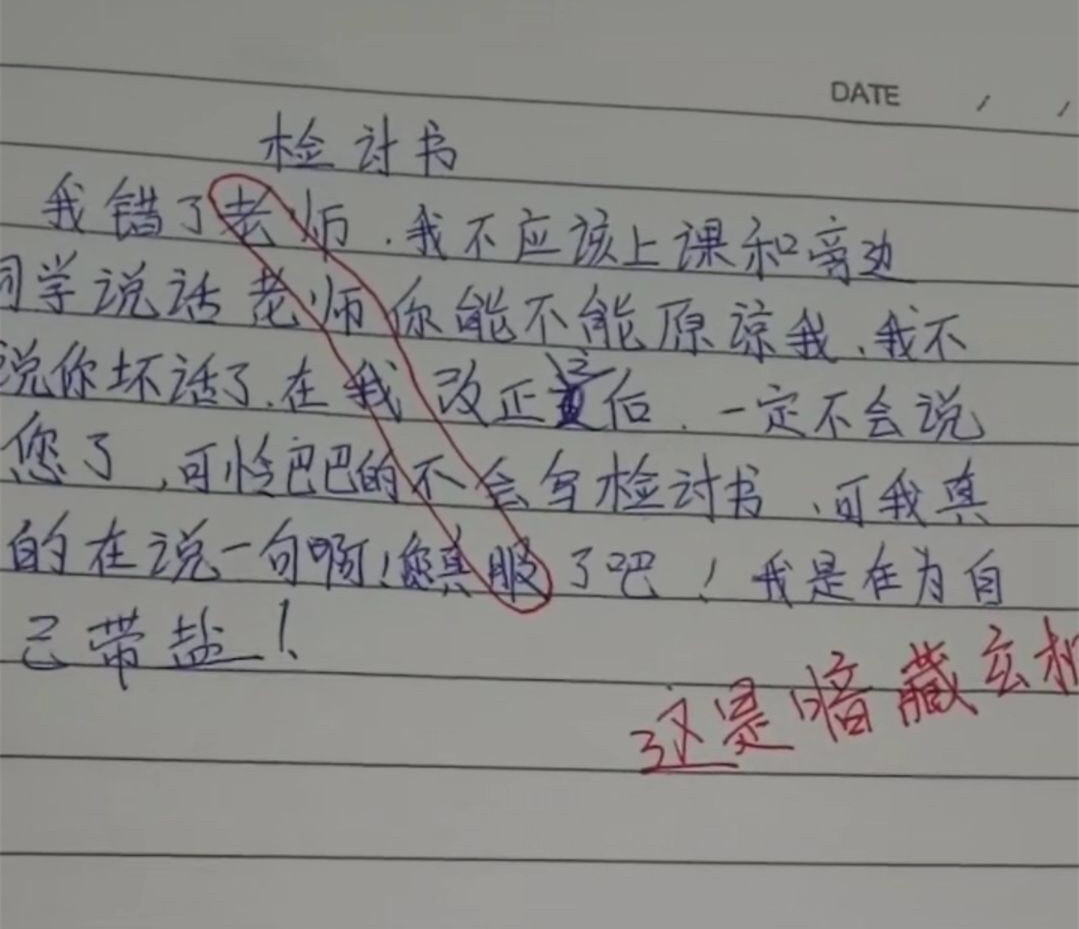 DATE / /
检讨书
我错了老师.我不应该上课和旁边
同学说话老师你能不能原谅我.我不
说你坏话了.在我改正之后.一定不会说
您了,可怜巴巴的不会写检讨书,可我真
的在说一句啊!您真服了吧!我是在为自
己带盐!
这是暗藏玄机